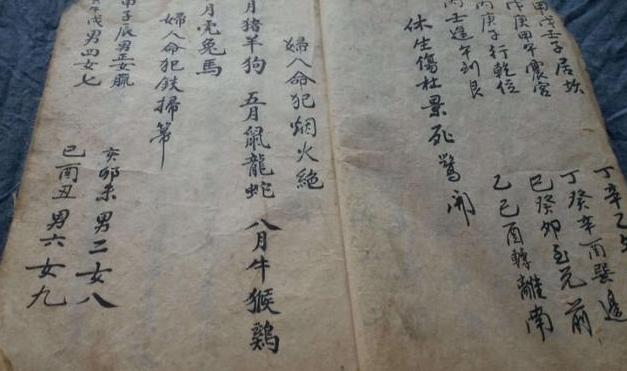 甲戊壬子居坎 丁辛乙
戊庚甲午震宮 丁癸辛酉巽邊
丙庚子行乾位 巳癸卯至兄前
丙壬逢午到艮 乙己酉轉離南
休生傷杜景死驚開
婦人命犯烟火絶
月猪羊狗 五月鼠龍蛇 八月牛猴鷄
月虎兔馬
婦人命犯鉄掃箒
子辰男正女臘 亥卯未男二女八
午戌男四女七 巳酉丑男六女九